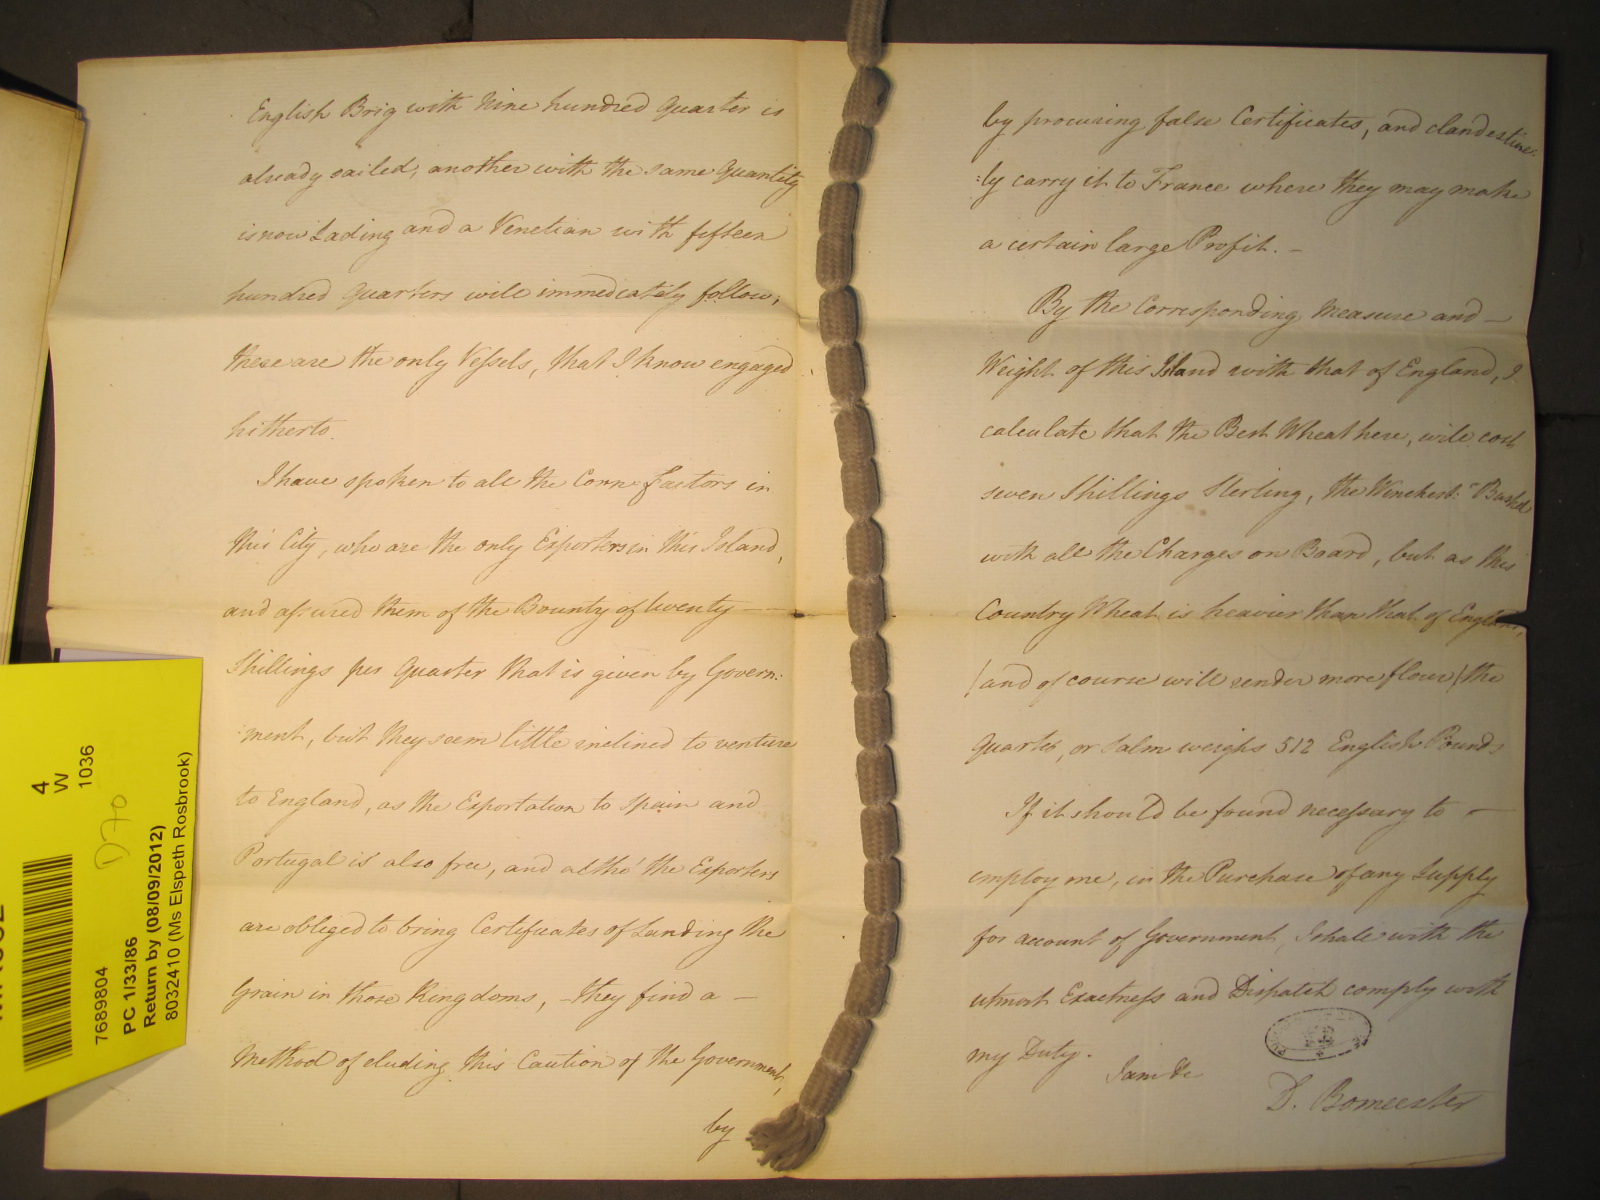 English Brig with Nine hundred Quarter is
already sailed; another with the same Quantity
is now Lading and a Venetian with fifteen
hundred Quarters will immediately follow,
these are the only Vessels, that I know engaged
hitherto.
I have spoken to all the Corn Factors in
this City, who are the only Exporters in this Island,
and assured them of the Bounty of twenty —
Shillings per Quarter that is given by Govern:
:ment, but they seem little inclined to venture
to England, as the Exportation to Spain and
Portugal is also free, and altho' the Exporters
are obliged to bring Certificates of Landing the
Grain in those Kingdoms, – they find a —
Method of eluding this Caution of the Government,
by
by procuring false Certificates, and clandestine:
:ly carry it to France where they may make
a certain large Profit. –
By the Corresponding Measure and —
Weight of this Island with that of England, I
calculate that the Best Wheat here, will cost
seven Shillings Sterling, the Winchest.r Bushel
with all the Charges on Board, but as this
Country Wheat is heavier than that of England,
(and of course will render more flour) the
Quarter, or Salm weighs 512 English Pounds
If it should be found necessary to —
employ me, in the Purchase of any Supply
for account of Government, I shall with the
utmost Exactness and Dispatch comply with
my Duty.
I am &c
D. Bomeester
4
W
1036
D70
7689804
PC 1/33/86
Return by (08/09/2012)
8032410 (Ms Elspeth Rosbrook)